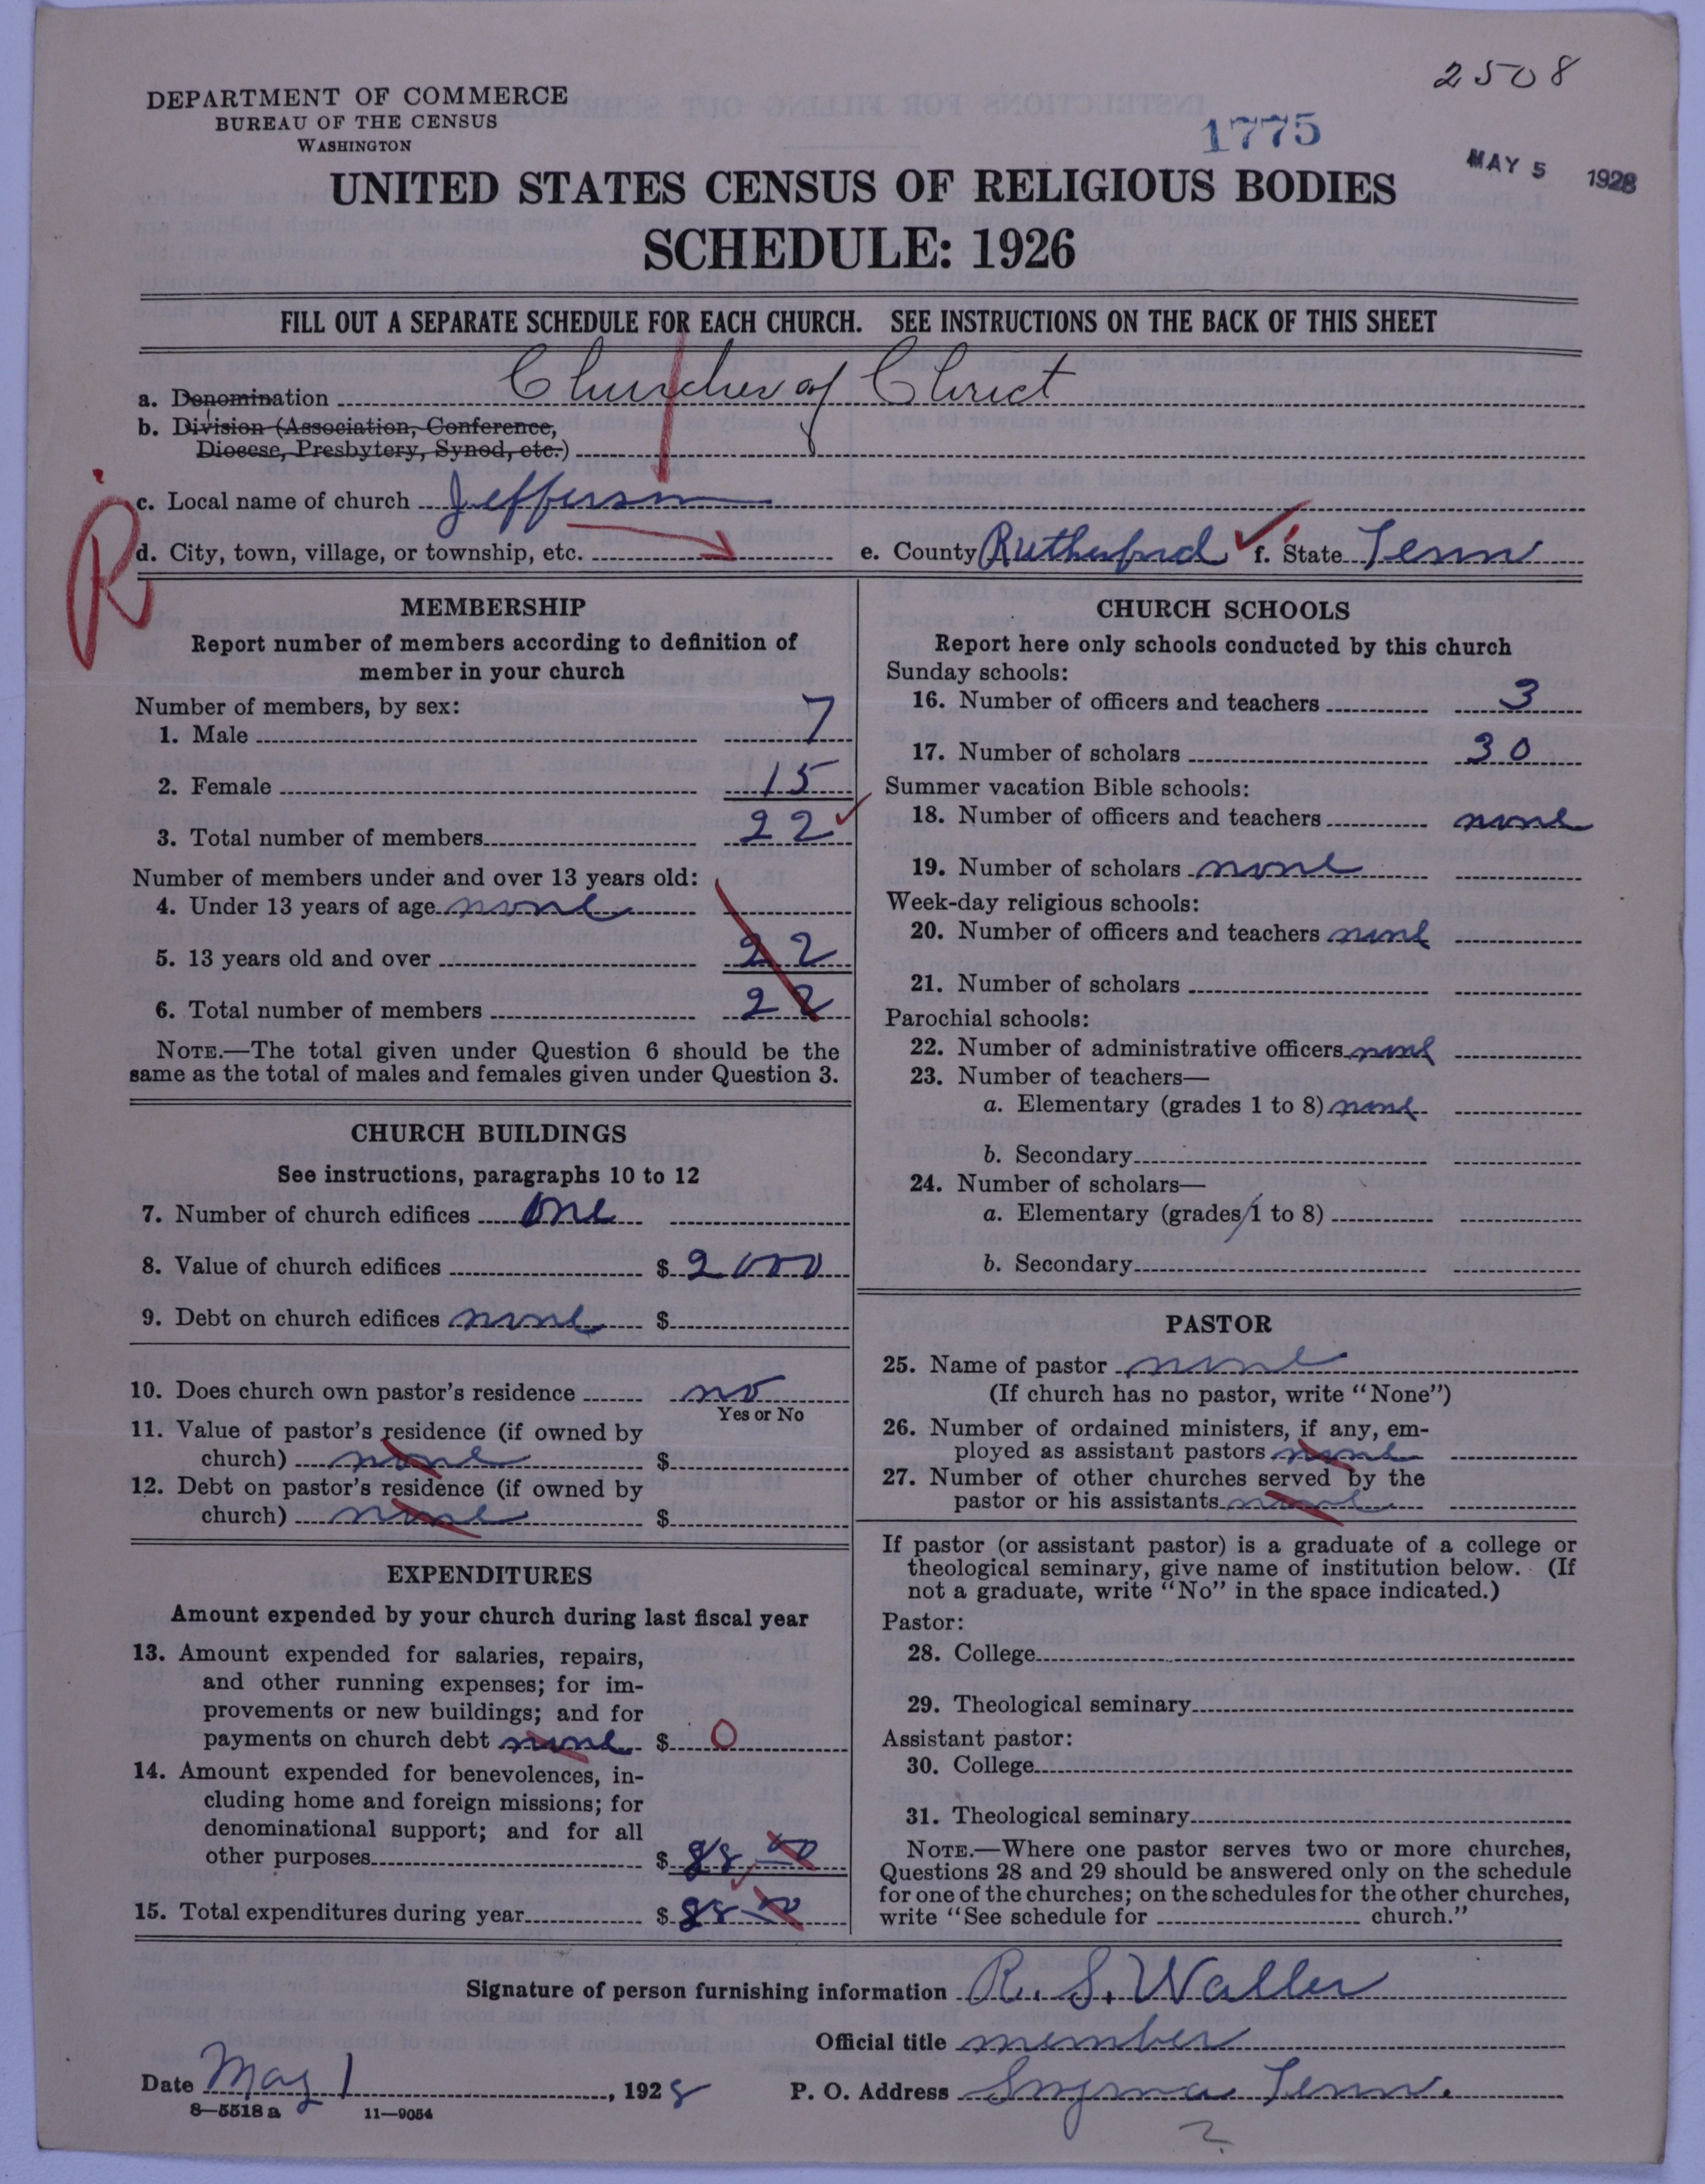 2508
DEPARTMENT OF COMMERCE
BUREAU OF THE CENSUS
WASHINGTON
1775
MAY 5 1928
UNITED STATES CENSUS OF RELIGIOUS BODIES
SCHEDULE: 1926
FILL OUT A SEPARATE SCHEDULE FOR EACH CHURCH. SEE INSTRUCTIONS ON THE BACK OF THIS SHEET
a. Denomination Churches of Christ
b. Division (Association, Conference,
Diocese, Presbytery, Synod, etc.)
R
c. Local name of church Jefferson
d. City, town, village, or township, etc. e. County Rutherford f. State Tenn
MEMBERSHIP
Report number of members according to definition of
member in your church
Number of members, by sex:
1. Male 7
2. Female 15
3. Total number of members 22
Number of members under and over 13 years old:
4. Under 13 years of age none
5. 13 years old and over 22
6. Total number of members 22
NOTE.—The total given under Question 6 should be the
same as the total of males and females given under Question 3.
CHURCH BUILDINGS
See instructions, paragraphs 10 to 12
7. Number of church edifices one
8. Value of church edifices $ 2000
9. Debt on church edifices none $
10. Does church own pastor's residence no
Yes or No
11. Value of pastor's residence (if owned by
church) none $
12. Debt on pastor's residence (if owned by
church) none $
EXPENDITURES
Amount expended by your church during last fiscal year
13. Amount expended for salaries, repairs,
and other running expenses; for im-
provements or new buildings; and for
payments on church debt none $ 0
14. Amount expended for benevolences, in-
cluding home and foreign missions; for
denominational support; and for all
other purposes $ 88 00
15. Total expenditures during year $ 88 00
CHURCH SCHOOLS
Report here only schools conducted by this church
Sunday schools:
16. Number of officers and teachers 3
17. Number of scholars 30
Summer vacation Bible schools:
18. Number of officers and teachers none
19. Number of scholars none
Week-day religious schools:
20. Number of officers and teachers none
21. Number of scholars
Parochial schools:
22. Number of administrative officers none
23. Number of teachers—
a. Elementary (grades 1 to 8) none
b. Secondary
24. Number of scholars—
a. Elementary (grades 1 to 8)
b. Secondary
PASTOR
25. Name of pastor none
(If church has no pastor, write "None")
26. Number of ordained ministers, if any, em-
ployed as assistant pastors none
27. Number of other churches served by the
pastor or his assistants none
If pastor (or assistant pastor) is a graduate of a college or
theological seminary, give name of institution below. (If
not a graduate, write "No" in the space indicated.)
Pastor:
28. College
29. Theological seminary
Assistant pastor:
30. College
31. Theological seminary
NOTE.—Where one pastor serves two or more churches,
Questions 28 and 29 should be answered only on the schedule
for one of the churches; on the schedules for the other churches,
write "See schedule for church."
Signature of person furnishing information R. S. Waller
Official title member
Date May 1, 1928 P. O. Address Smyrna Tenn.
8—5518 a 11—9054
?